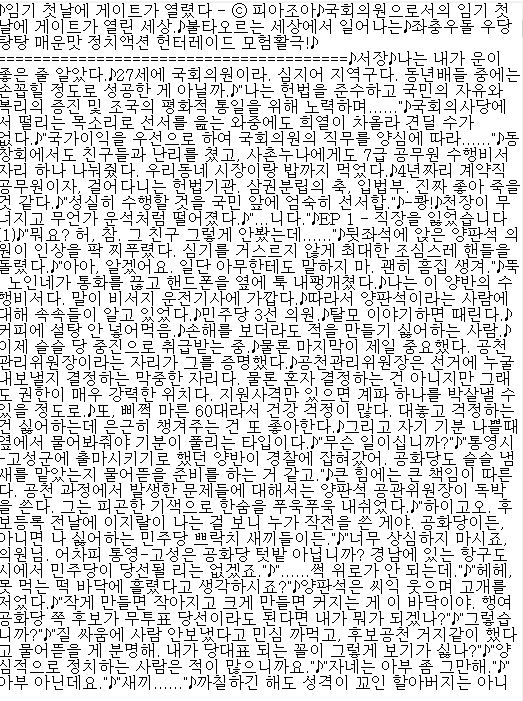 ♪임기 첫날에 게이트가 열렸다 - ⓒ 피아조아♪국회의원으로서의 임기 첫
날에 게이트가 열린 세상.♪불타오르는 세상에서 일어나는♪좌충우돌 우당
탕탕 매운맛 정치액션 헌터레이드 모험활극!♪
========================================♪서장♪나는 내가 운이
좋은 줄 알았다.♪27세에 국회의원이라. 심지어 지역구다. 동년배들 중에는
손꼽힐 정도로 성공한 게 아닐까.♪"나는 헌법을 준수하고 국민의 자유와
복리의 증진 및 조국의 평화적 통일을 위해 노력하며......"♪국회의사당에
서 떨리는 목소리로 선서를 읊는 와중에도 희열이 차올라 견딜 수가
없다.♪"국가이익을 우선으로 하여 국회의원의 직무를 양심에 따라......"♪동
창회에서도 친구들과 난리를 쳤고, 사촌누나에게도 7급 공무원 수행비서
자리 하나 나눠줬다. 우리동네 시장이랑 밥까지 먹었다.♪4년짜리 계약직
공무원이자, 걸어다니는 헌법기관. 삼권분립의 축, 입법부. 진짜 좋아 죽을
것 같다.♪"성실히 수행할 것을 국민 앞에 엄숙히 선서합."♪-쾅!♪천장이 무
너지고 무언가 운석처럼 떨어졌다.♪"...니다."♪EP 1 - 직장을 잃었습니다
(1)♪"뭐요? 허, 참. 그 친구 그렇게 안봤는데......"♪뒷좌석에 앉은 양판석 의
원이 인상을 팍 찌푸렸다. 심기를 거스르지 않게 최대한 조심스레 핸들을
돌렸다.♪"아아, 알겠어요. 일단 아무한테도 말하지 마. 괜히 흠집 생겨."♪뚝
. 노인네가 통화를 끊고 핸드폰을 옆에 툭 내팽개쳤다.♪나는 이 양반의 수
행비서다. 말이 비서지 운전기사에 가깝다.♪따라서 양판석이라는 사람에
대해 속속들이 알고 있었다.♪민주당 3선 의원.♪탈모 이야기하면 때린다.♪
커피에 설탕 안 넣어먹음.♪손해를 보더라도 적을 만들기 싫어하는 사람.♪
이제 슬슬 당 중진으로 취급받는 중.♪물론 마지막이 제일 중요했다. 공천
관리위원장이라는 자리가 그를 증명했다.♪공천관리위원장은 선거에 누굴
내보낼지 결정하는 막중한 자리다. 물론 혼자 결정하는 건 아니지만 그래
도 권한이 매우 강력한 위치다. 지원사격만 있으면 계파 하나를 박살낼 수
있을 정도로.♪또, 삐쩍 마른 60대라서 건강 걱정이 많다. 대놓고 걱정하는
건 싫어하는데 은근히 챙겨주는 건 또 좋아한다.♪그리고 자기 기분 나쁠때
옆에서 물어봐줘야 기분이 풀리는 타입이다.♪"무슨 일이십니까?"♪"통영시
-고성군에 출마시키기로 했던 양반이 경찰에 잡혀갔어. 공화당도 슬슬 냄
새를 맡았는지 물어뜯을 준비를 하는 거 같고."♪큰 힘에는 큰 책임이 따른
다. 공천 과정에서 발생한 문제들에 대해서는 양판석 공관위원장이 독박
을 쓴다. 그는 피곤한 기색으로 한숨을 푸욱푸욱 내쉬었다.♪"하이고오. 후
보등록 전날에 이지랄이 나는 걸 보니 누가 작전을 쓴 게야. 공화당이든,
아니면 나 싫어하는 민주당 쁘락치 새끼들이든."♪"너무 상심하지 마시죠,
의원님. 어차피 통영-고성은 공화당 텃밭 아닙니까? 경남에 있는 항구도
시에서 민주당이 당선될 리는 없겠죠."♪"......썩 위로가 안 되는데."♪"헤헤,
못 먹는 떡 바닥에 흘렸다고 생각하시죠?"♪양판석은 씨익 웃으며 고개를
저었다.♪"작게 만들면 작아지고 크게 만들면 커지는 게 이 바닥이야. 행여
공화당 쪽 후보가 무투표 당선이라도 된다면 내가 뭐가 되겠나?"♪"그렇습
니까?"♪"질 싸움에 사람 안보냈다고 민심 까먹고, 후보공천 거지같이 했다
고 물어뜯을 게 분명해. 내가 당대표 되는 꼴이 그렇게 보기가 싫나?"♪"양
심적으로 정치하는 사람은 적이 많으니까요."♪"자네는 아부 좀 그만해."♪"
아부 아닌데요."♪"새끼......"♪까칠하긴 해도 성격이 꼬인 할아버지는 아니